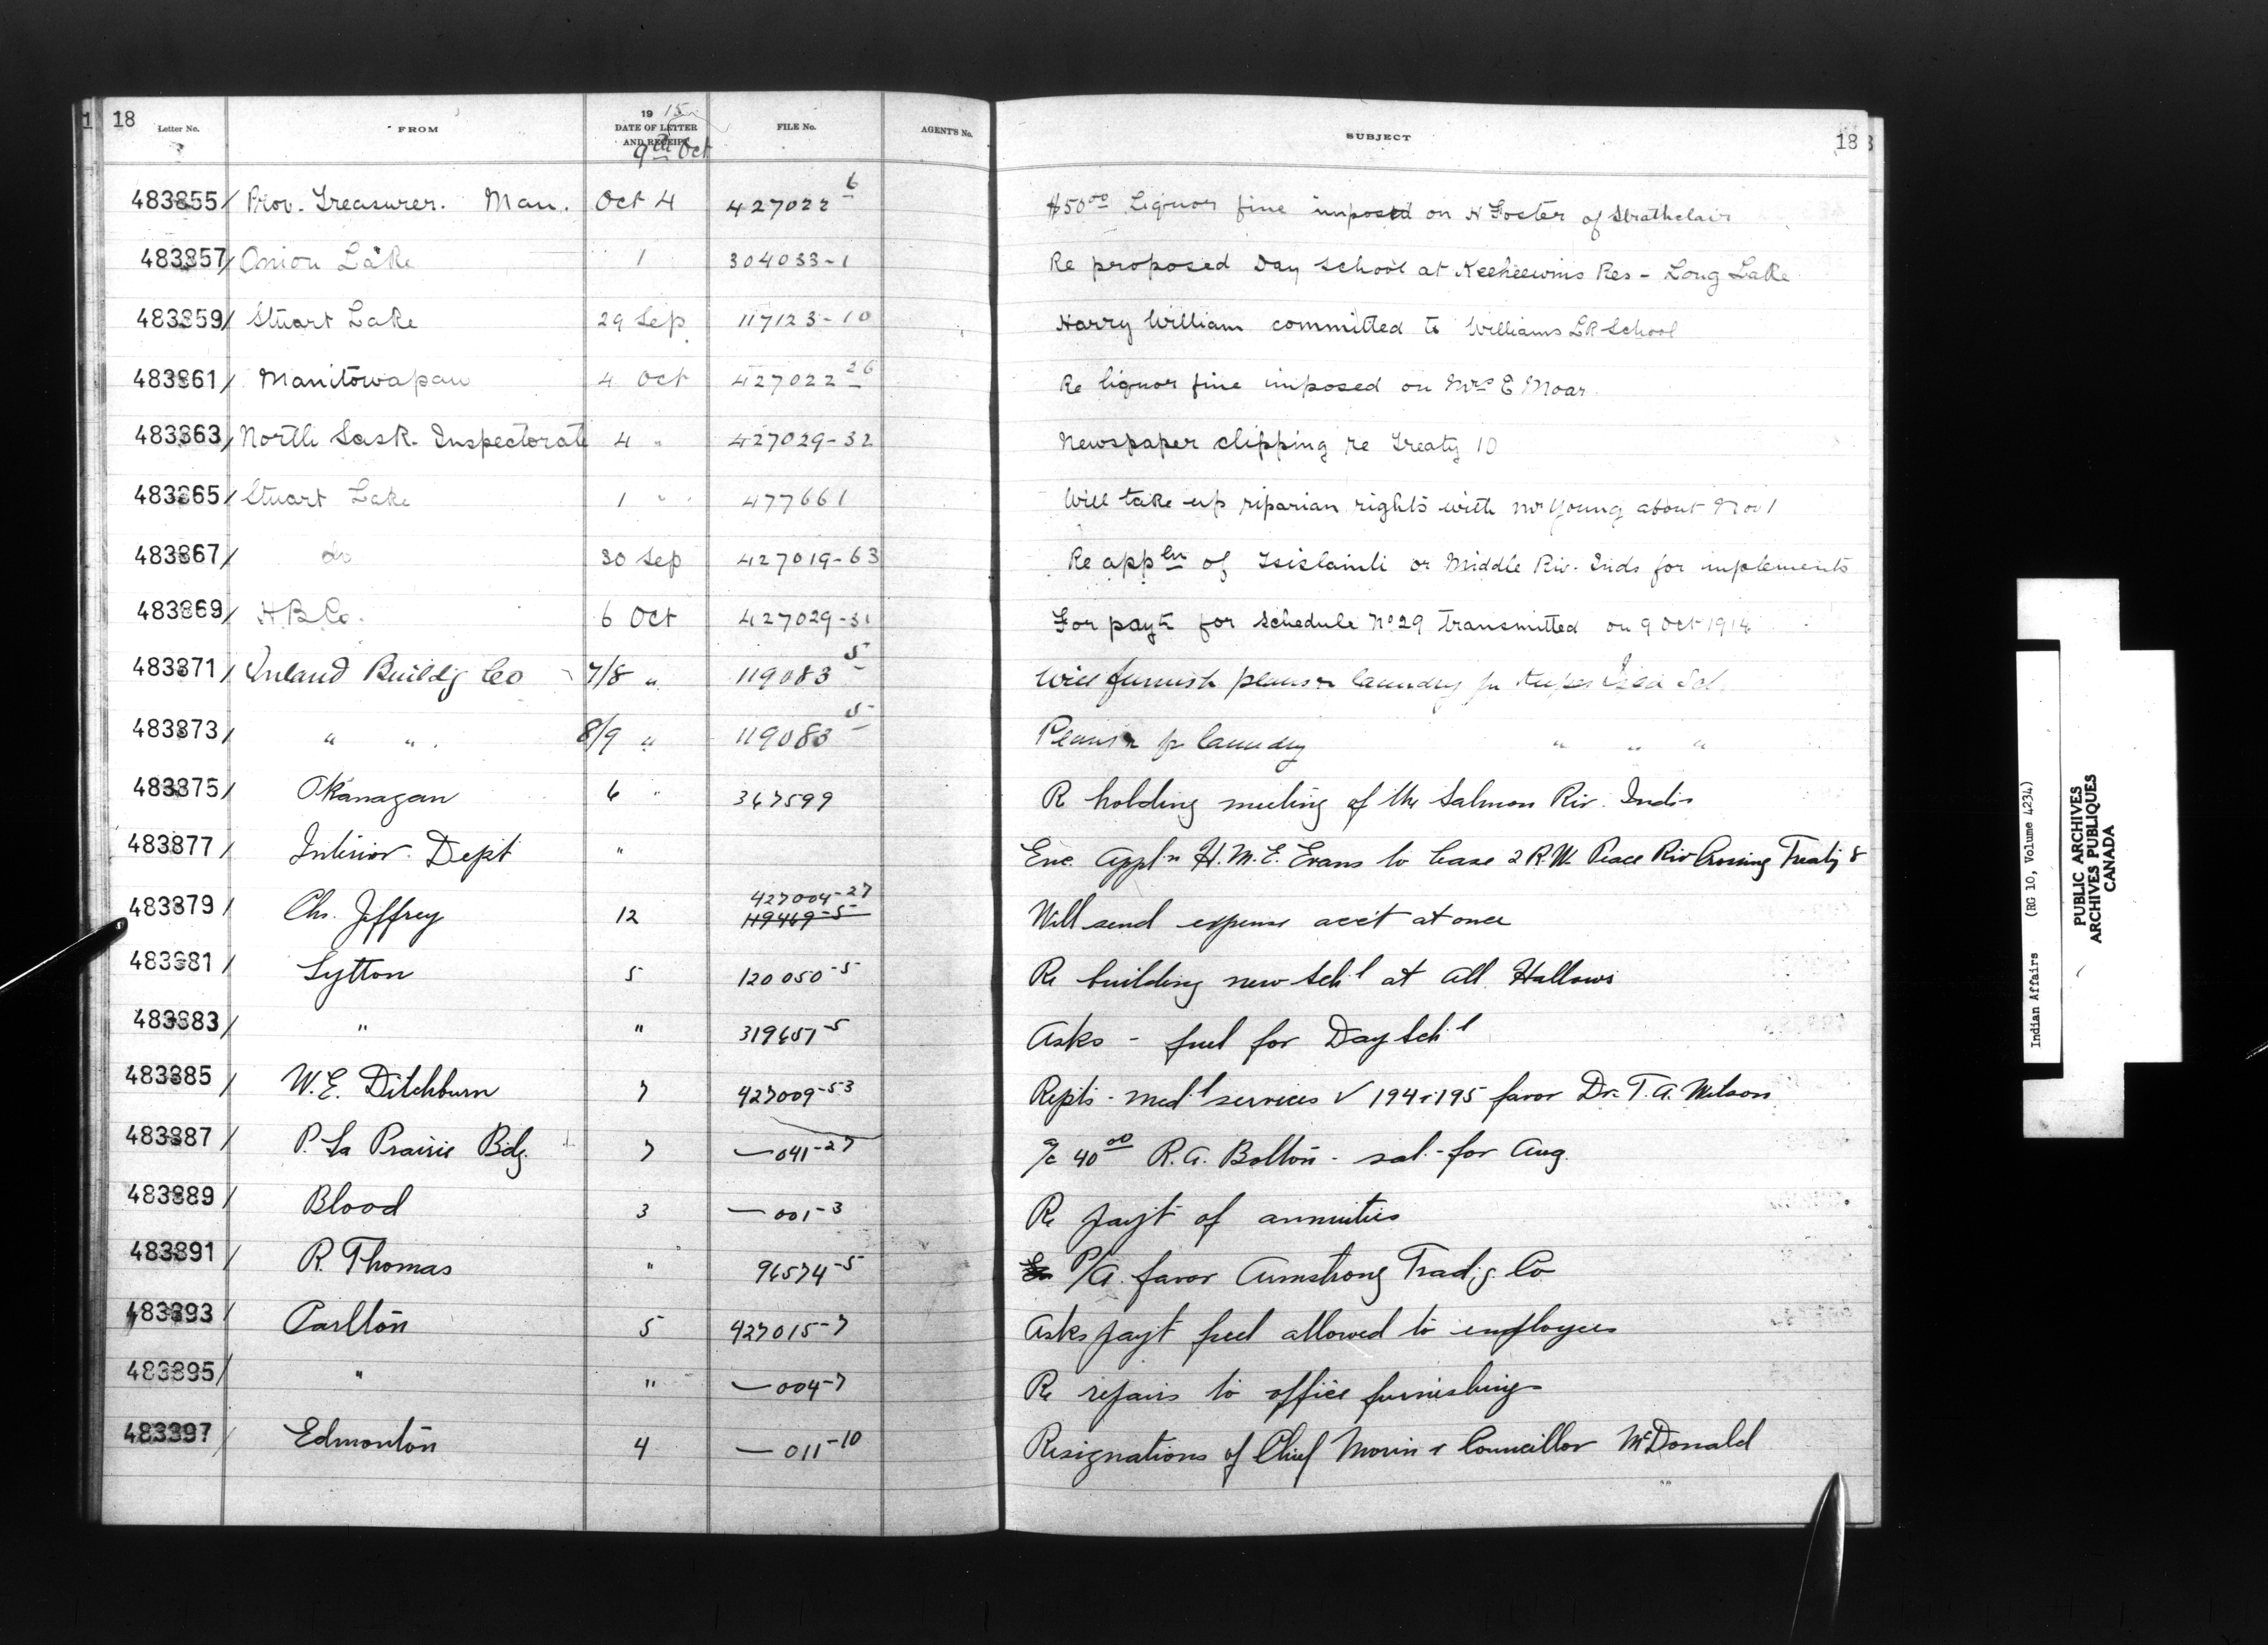 18
Letter No. FROM 19 15 DATE OF LETTER AND RECEIPT FILE No. AGENT'S No. SUBJECT 18
9th Oct
483855/ Prov. Treasurer. Man. Oct 4 427022 6 $50 00 Liquor fine imposed on H Foster of Strathclair
483857/ Onion Lake 1 304033-1 Re proposed Day School at Keeheewins Res - Long Lake
483859/ Stuart Lake 29 Sep 117123-10 Harry William committed to Williams LR School
483861/ Manitowapaw 4 Oct 427022 26 Re liquor fine imposed on Mrs E Moar.
483863/ North Sask. Inspectorate 4 " 427029-32 Newspaper clipping re Treaty 10
483865/ Stuart Lake 1 " 477661 Will take up riparian rights with Mr Young about Nov 1
483867/ do 30 Sep 427019-63 Re appln of or Middle Riv. Inds for implements
483869/ H.B.Co. 6 Oct 427029-31 For payt for schedule No 29 transmitted on 9 Oct 1914
483871/ Inland Buildg Co 7/8 " 119083 5 Will furnish plans laundry
483873/ " " 8/9 " 119083 5 laundry " " "
483875/ Okanagan 6 " 367599 Re holding meeting of the Salmon Riv. Inds
483877/ Interior Dept " Enc. Appln H.M.E. Evans to lease 2 R.W. Peace Riv Crossing Treaty 8
483879/ Chs. Jeffrey 12 427004-27 119469-5 Will send expense acct at once
483881/ Lytton 5 120050-5 Re building new Sch'l at All Hallows
483883/ " " 319657-5 Asks - fuel for Day Sch'l
483885/ W.E. Ditchburn 7 427009-53 Repts - med'l services √ 194 & 195 favor Dr. T.A. Wilson
483887/ P. La Prairie Bdg. 7 — 041-27 a/c 40 00 R.A. Bolton - sal. - for Aug.
483889/ Blood 3 — 001-3 Re payt of annuities
483891/ R. Thomas " 96574-5 P/A. favor Armstrong Trad'g. Co
483893/ Carlton 5 427015-7 Asks payt fuel allowed to employees
483895/ " " — 004-7 Re repairs to office furnishings
483897/ Edmonton 4 — 011-10 Resignations of Chief Morin & Councillor McDonald
Indian Affairs (RG 10, Volume 4234)
PUBLIC ARCHIVES
ARCHIVES PUBLIQUES
CANADA